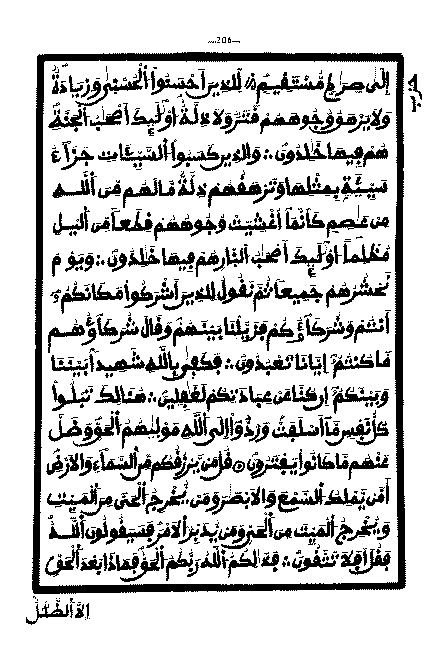 —206—
حزب
إلى صراط مستقيم للذين أحسنوا الحسنى وزيادة
ولا يرهق وجوههم قتر ولا ذلة أولئك أصحب الجنة
هم فيها خلدون ∴ والذين كسبوا السيئات جزاء
سيئة بمثلها وترهقهم ذلة ما لهم من الله
من عصم كأنما أغشيت وجوههم قطعا من اليل
مظلما أولئك أصحب النار هم فيها خلدون ∴ ويوم
نحشرهم جميعا ثم نقول للذين أشركوا مكانكم
أنتم وشركاؤكم فزيلنا بينهم وقال شركاؤهم
ما كنتم إيانا تعبدون ∴ فكفى بالله شهيدا بيننا
وبينكم إن كنا عن عبادتكم لغفلين ∴ هنالك تبلوا
كل نفس ما أسلفت وردوا إلى الله موليهم الحق وضل
عنهم ما كانوا يفترون قل من يرزقكم من السماء والأرض
أمن يملك السمع والأبصر ومن يخرج الحي من الميت
ويخرج الميت من الحي ومن يدبر الأمر فسيقولون الله
فقل أفلا تتقون ∴ فذلكم الله ربكم الحق فماذا بعد الحق
إلا الضلل